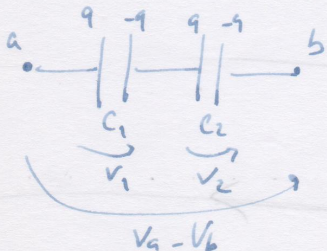 a q -q q -q b
C₁ C₂
V₁ V₂
Va - Vb